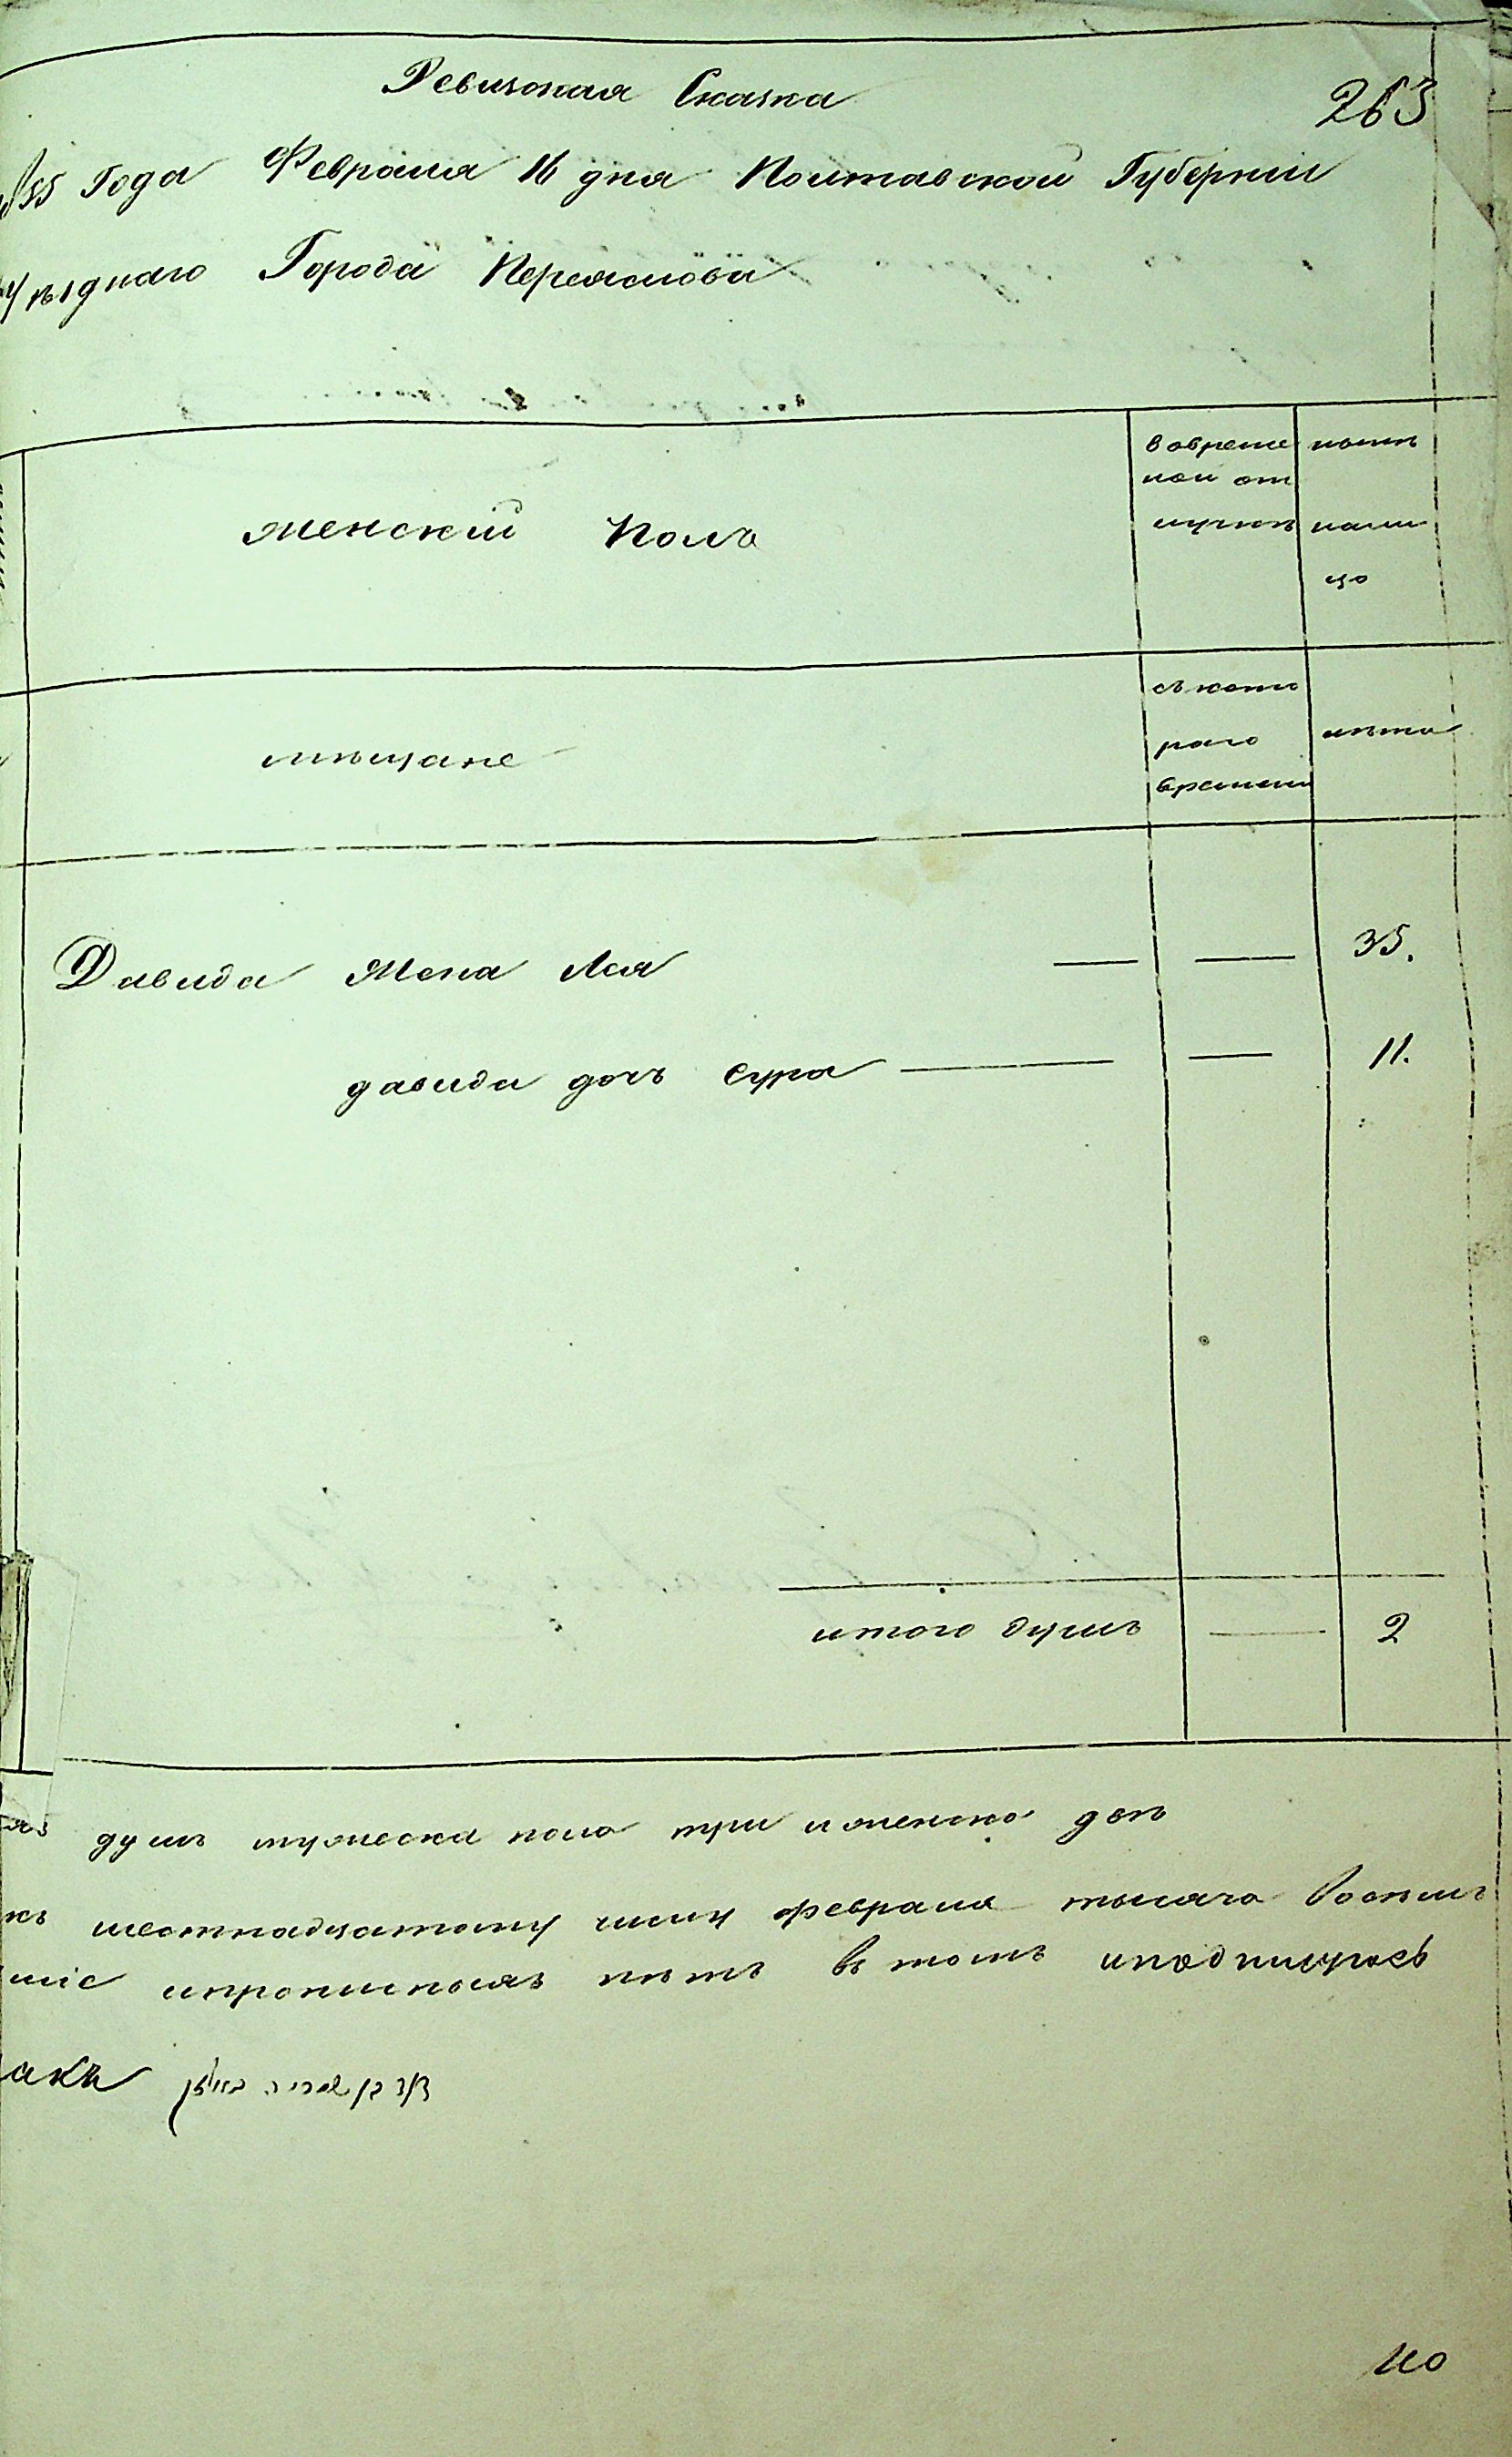 Ревизская Сказка
263
855 Года Февраля 16 дня Полтавской Губернии
Уѣзднаго Города Переяслова
женский Полъ
вовреме
ной от
лучкѣ
нынѣ
нали
цо
мѣщане
съ кото
раго
времени
лѣта
Давида Жена Лея — — 35.
давида дочь Сура — — 11.
итого душъ — 2
душъ мужеска пола три и женска двѣ
къ шестнадцатому числу февраля тысяча Восемъ
ніе и прописныхъ нѣтъ въ томъ и подпишусь
акъ
По